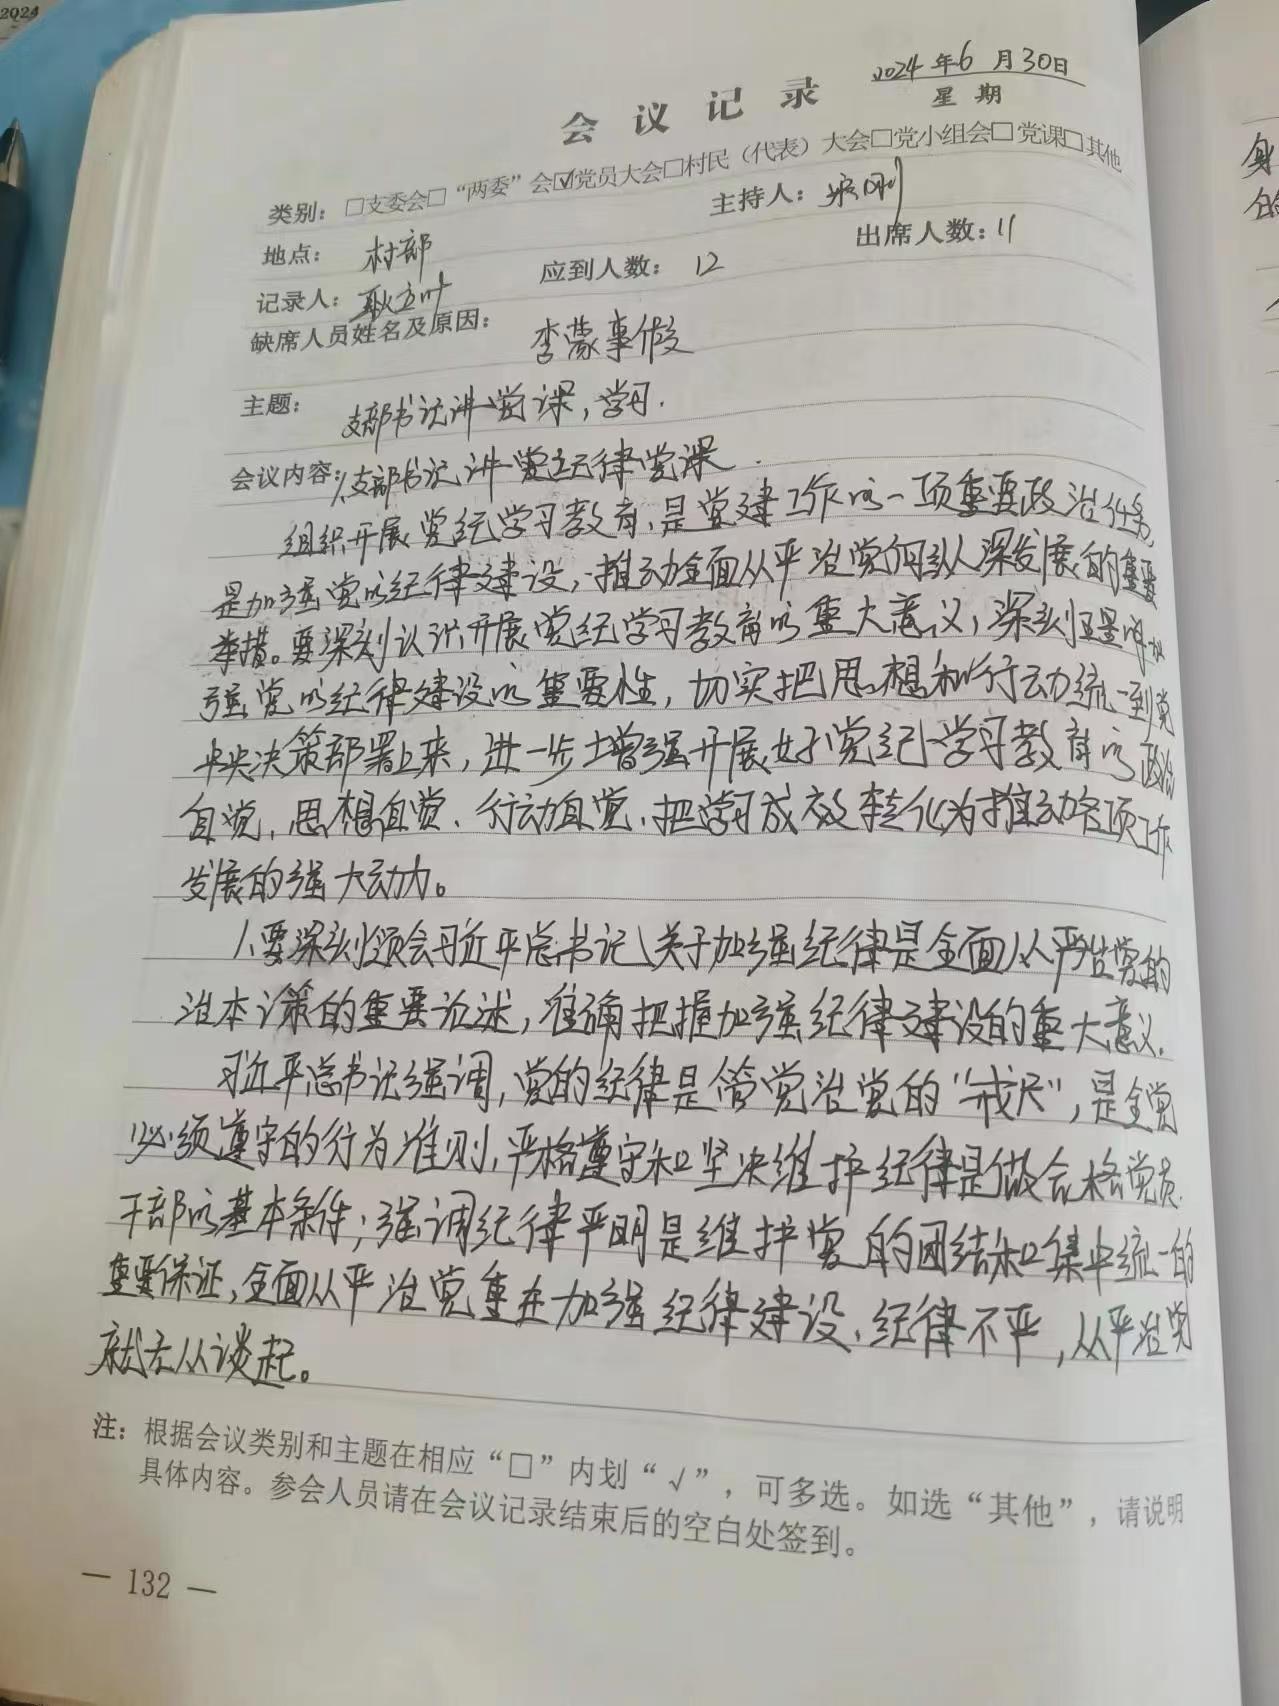 2024
2024年6月30日
会议记录
星期
类别：□支委会□“两委”会☑党员大会□村民（代表）大会□党小组会□党课□其他
地点：村部 主持人：
记录人：耿立叶 应到人数：12 出席人数：11
缺席人员姓名及原因：李蒙事假
主题：支部书记讲党课，学习.
会议内容：1、支部书记讲党纪律党课.
组织开展党纪学习教育，是党建工作的一项重要政治任务，
是加强党的纪律建设，推动全面从严治党向纵深发展的重要
举措。要深刻认识开展党纪学习教育的重大意义，深刻
强党的纪律建设的重要性，切实把思想和行动统一到党
中央决策部署上来，进一步增强开展好党纪学习教育的政治
自觉、思想自觉、行动自觉，把学习成效转化为推动各项工作
发展的强大动力。
1、要深刻领会习近平总书记关于加强纪律是全面从严治党的
治本之策的重要论述，准确把握加强纪律建设的重大意义.
习近平总书记强调，党的纪律是管党治党的“戒尺”，是全党
必须遵守的行为准则，严格遵守和坚决维护纪律是做合格党员、
干部的基本条件；强调纪律严明是维护党的团结和集中统一的
重要保证，全面从严治党重在加强纪律建设，纪律不严，从严治党
就无从谈起。
注：根据会议类别和主题在相应“□”内划“√”，可多选。如选“其他”，请说明
具体内容。参会人员请在会议记录结束后的空白处签到。
— 132 —